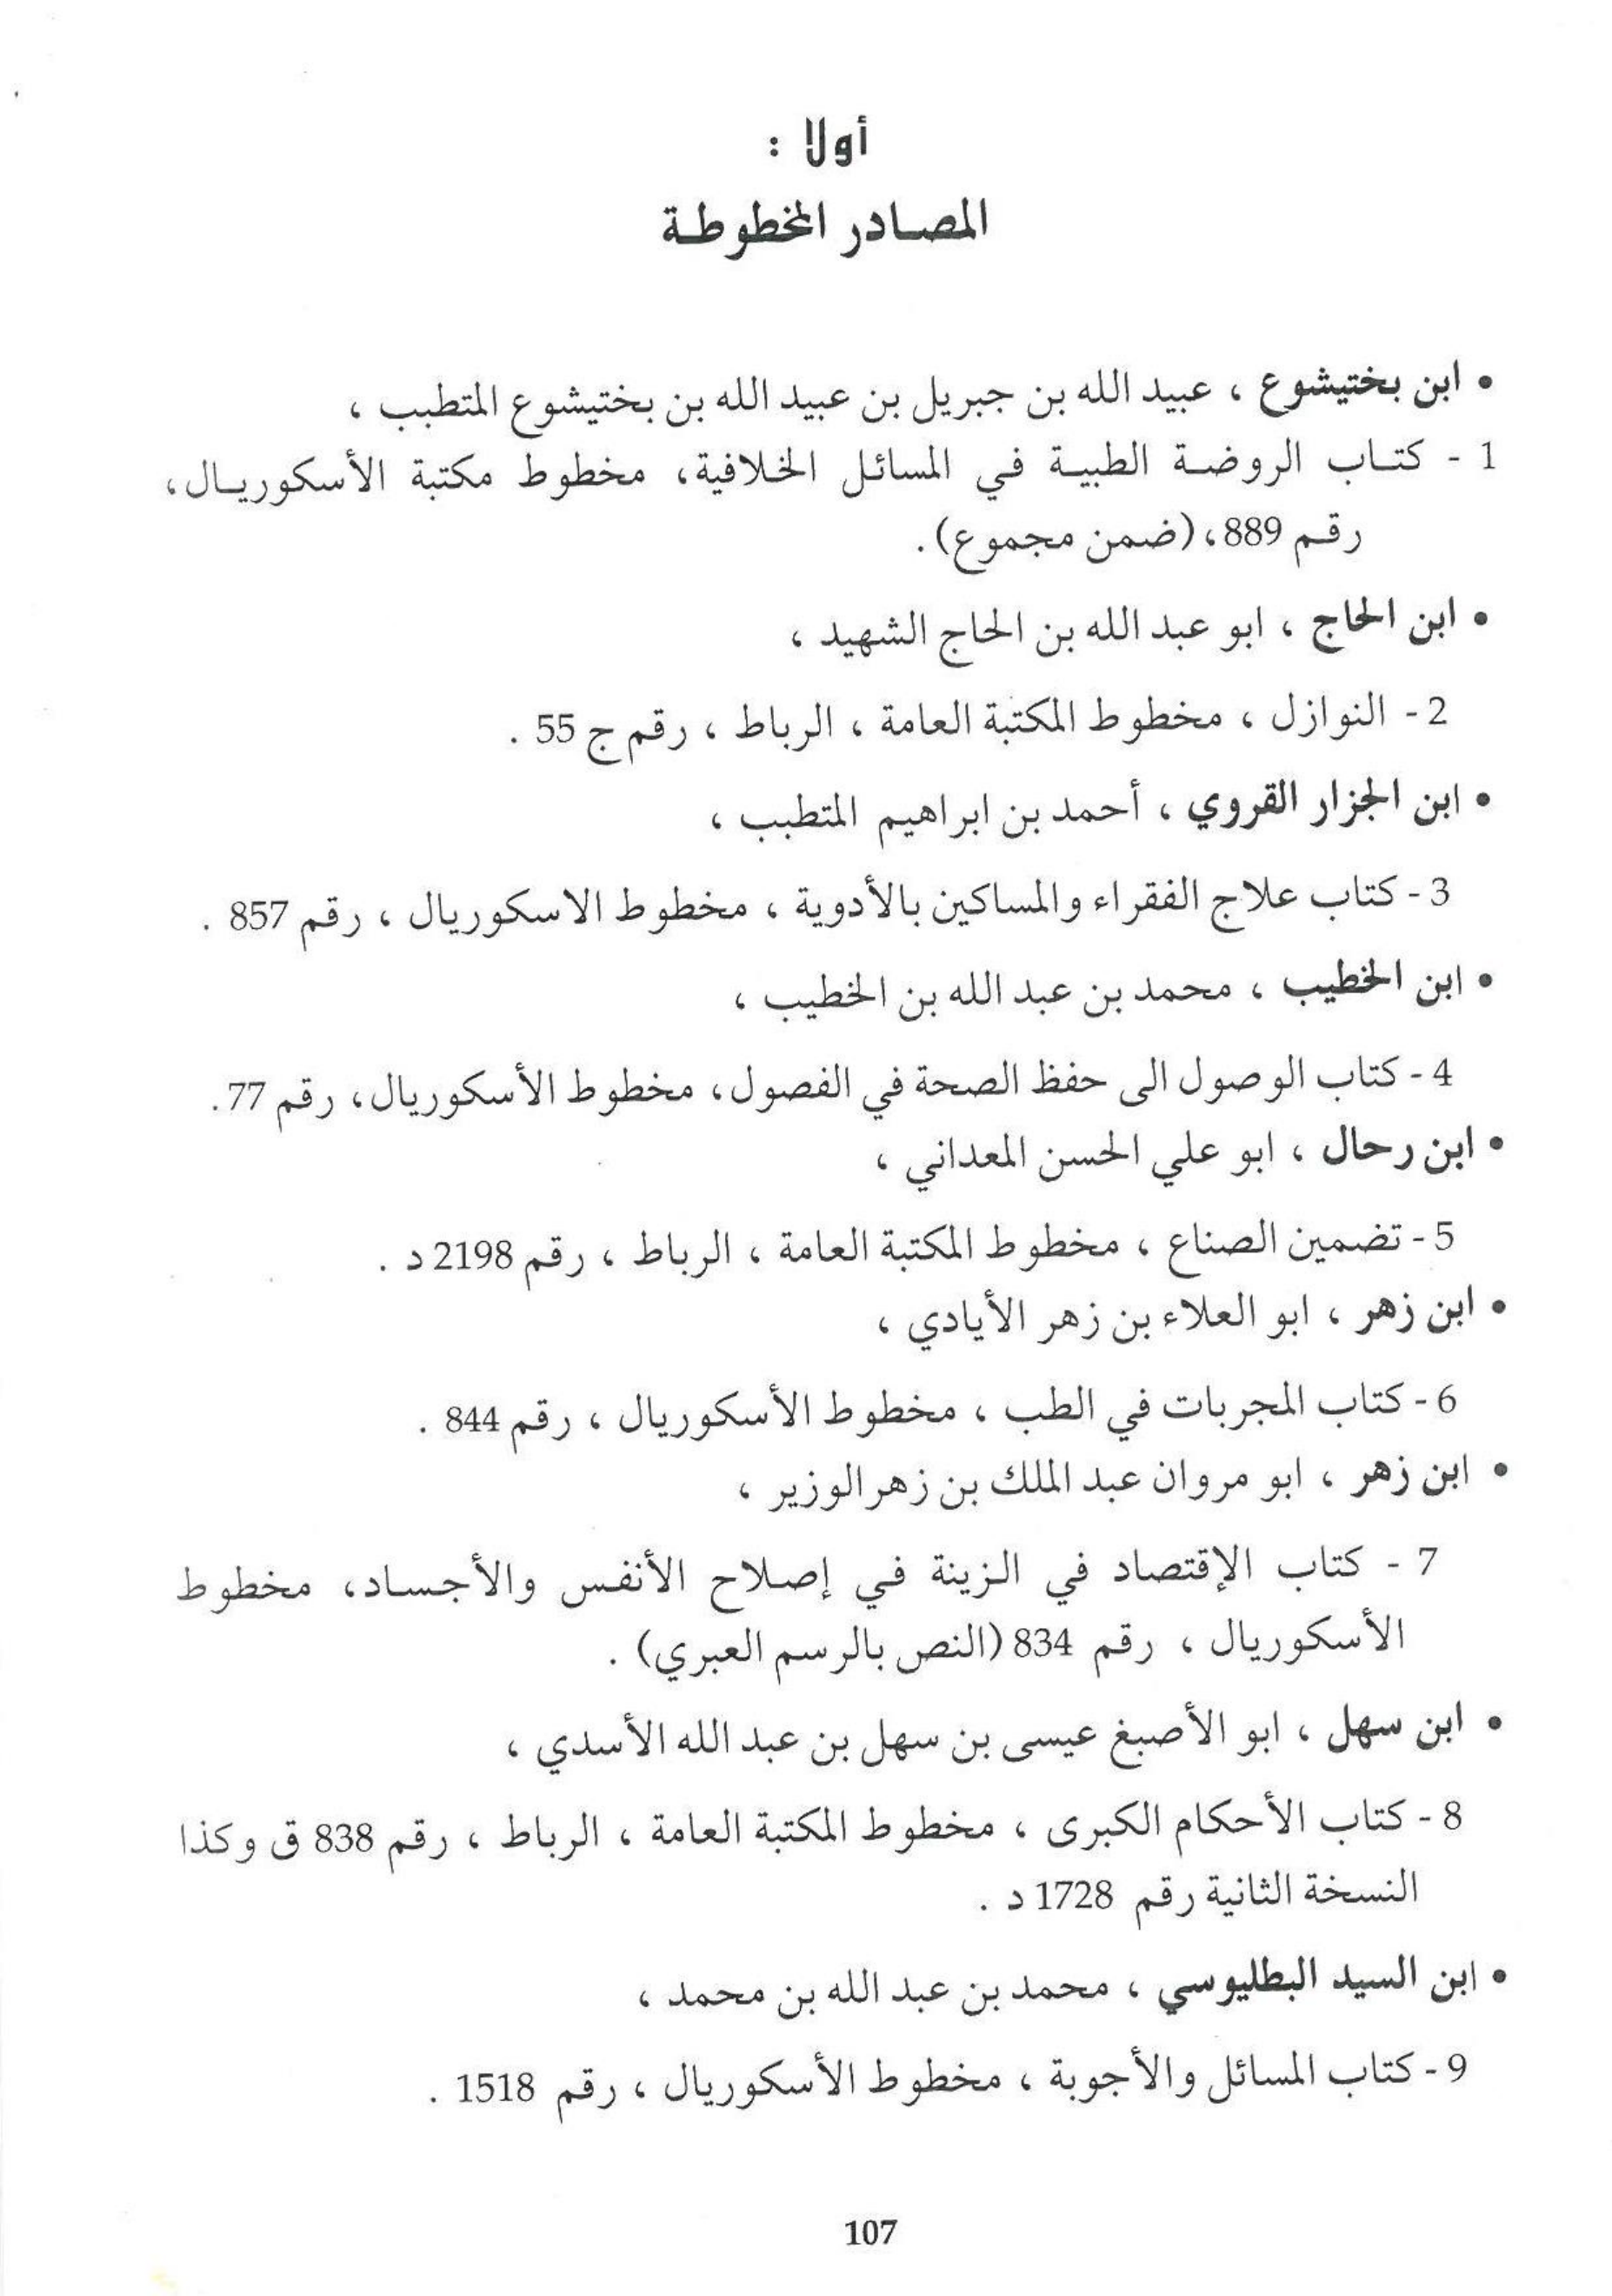 أولا :
المصادر المخطوطة
• ابن بختيشوع ، عبيد الله بن جبريل بن عبيد الله بن بختيشوع المتطبب ،
1 - كتاب الروضة الطبية في المسائل الخلافية، مخطوط مكتبة الأسكوريال،
رقم 889، (ضمن مجموع) .
• ابن الحاج ، ابو عبد الله بن الحاج الشهيد ،
2 - النوازل ، مخطوط المكتبة العامة ، الرباط ، رقم ج 55 .
• ابن الجزار القروي ، أحمد بن ابراهيم المتطبب ،
3 - كتاب علاج الفقراء والمساكين بالأدوية ، مخطوط الاسكوريال ، رقم 857 .
• ابن الخطيب ، محمد بن عبد الله بن الخطيب ،
4 - كتاب الوصول الى حفظ الصحة في الفصول، مخطوط الأسكوريال، رقم 77.
• ابن رحال ، ابو علي الحسن المعداني ،
5 - تضمين الصناع ، مخطوط المكتبة العامة ، الرباط ، رقم 2198 د .
• ابن زهر ، ابو العلاء بن زهر الأيادي ،
6 - كتاب المجربات في الطب ، مخطوط الأسكوريال ، رقم 844 .
• ابن زهر ، ابو مروان عبد الملك بن زهر الوزير ،
7 - كتاب الإقتصاد في الزينة في إصلاح الأنفس والأجساد، مخطوط
الأسكوريال ، رقم 834 (النص بالرسم العبري) .
• ابن سهل ، ابو الأصبغ عيسى بن سهل بن عبد الله الأسدي ،
8 - كتاب الأحكام الكبرى ، مخطوط المكتبة العامة ، الرباط ، رقم 838 ق وكذا
النسخة الثانية رقم 1728 د .
• ابن السيد البطليوسي ، محمد بن عبد الله بن محمد ،
9 - كتاب المسائل والأجوبة ، مخطوط الأسكوريال ، رقم 1518 .
107